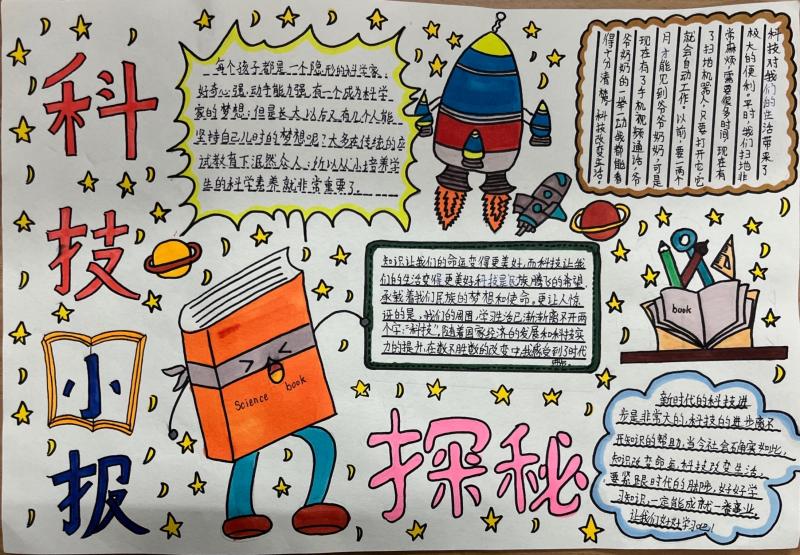 科技小报
每个孩子都是一个隐形的科学家,
好奇心强,动手能力强,有一个成为科学
家的梦想;但是长大以后又有几个人能
坚持自己儿时的梦想呢?大多在传统的应
试教育下泯然众人;所以从小培养学
生的科学素养就非常重要了。
科技对我们的生活带来了
极大的便利。平时,我们扫地非
常麻烦,需要很多时间,现在有
了扫地机器人,只要打开它,它
就会自动工作。以前,要一两个
月才能见到爷爷奶奶,可是
现在有了手机视频通话,爷
爷奶奶的一举一动我都能看
得十分清楚。科技改变生活。
知识让我们的命运变得更美好,而科技让我
们的生活变得更美好科技是民族腾飞的希望,
承载着我们民族的梦想和使命。更让人惊
讶的是,我们的周围,学习生活已渐渐离不开两
个字:“科技”,随着国家经济的发展和科技实
力的提升,在数不胜数的改变中,我感受到了时代
book
Science book
探秘
新时代的科技进
步是非常大的,科技的进步离不
开知识的帮助,当今社会确实如此,
知识改变命运,科技改变生活,
要紧跟时代的脚步,好好学
习知识,一定能成就一番事业,
让我们好好学习吧!